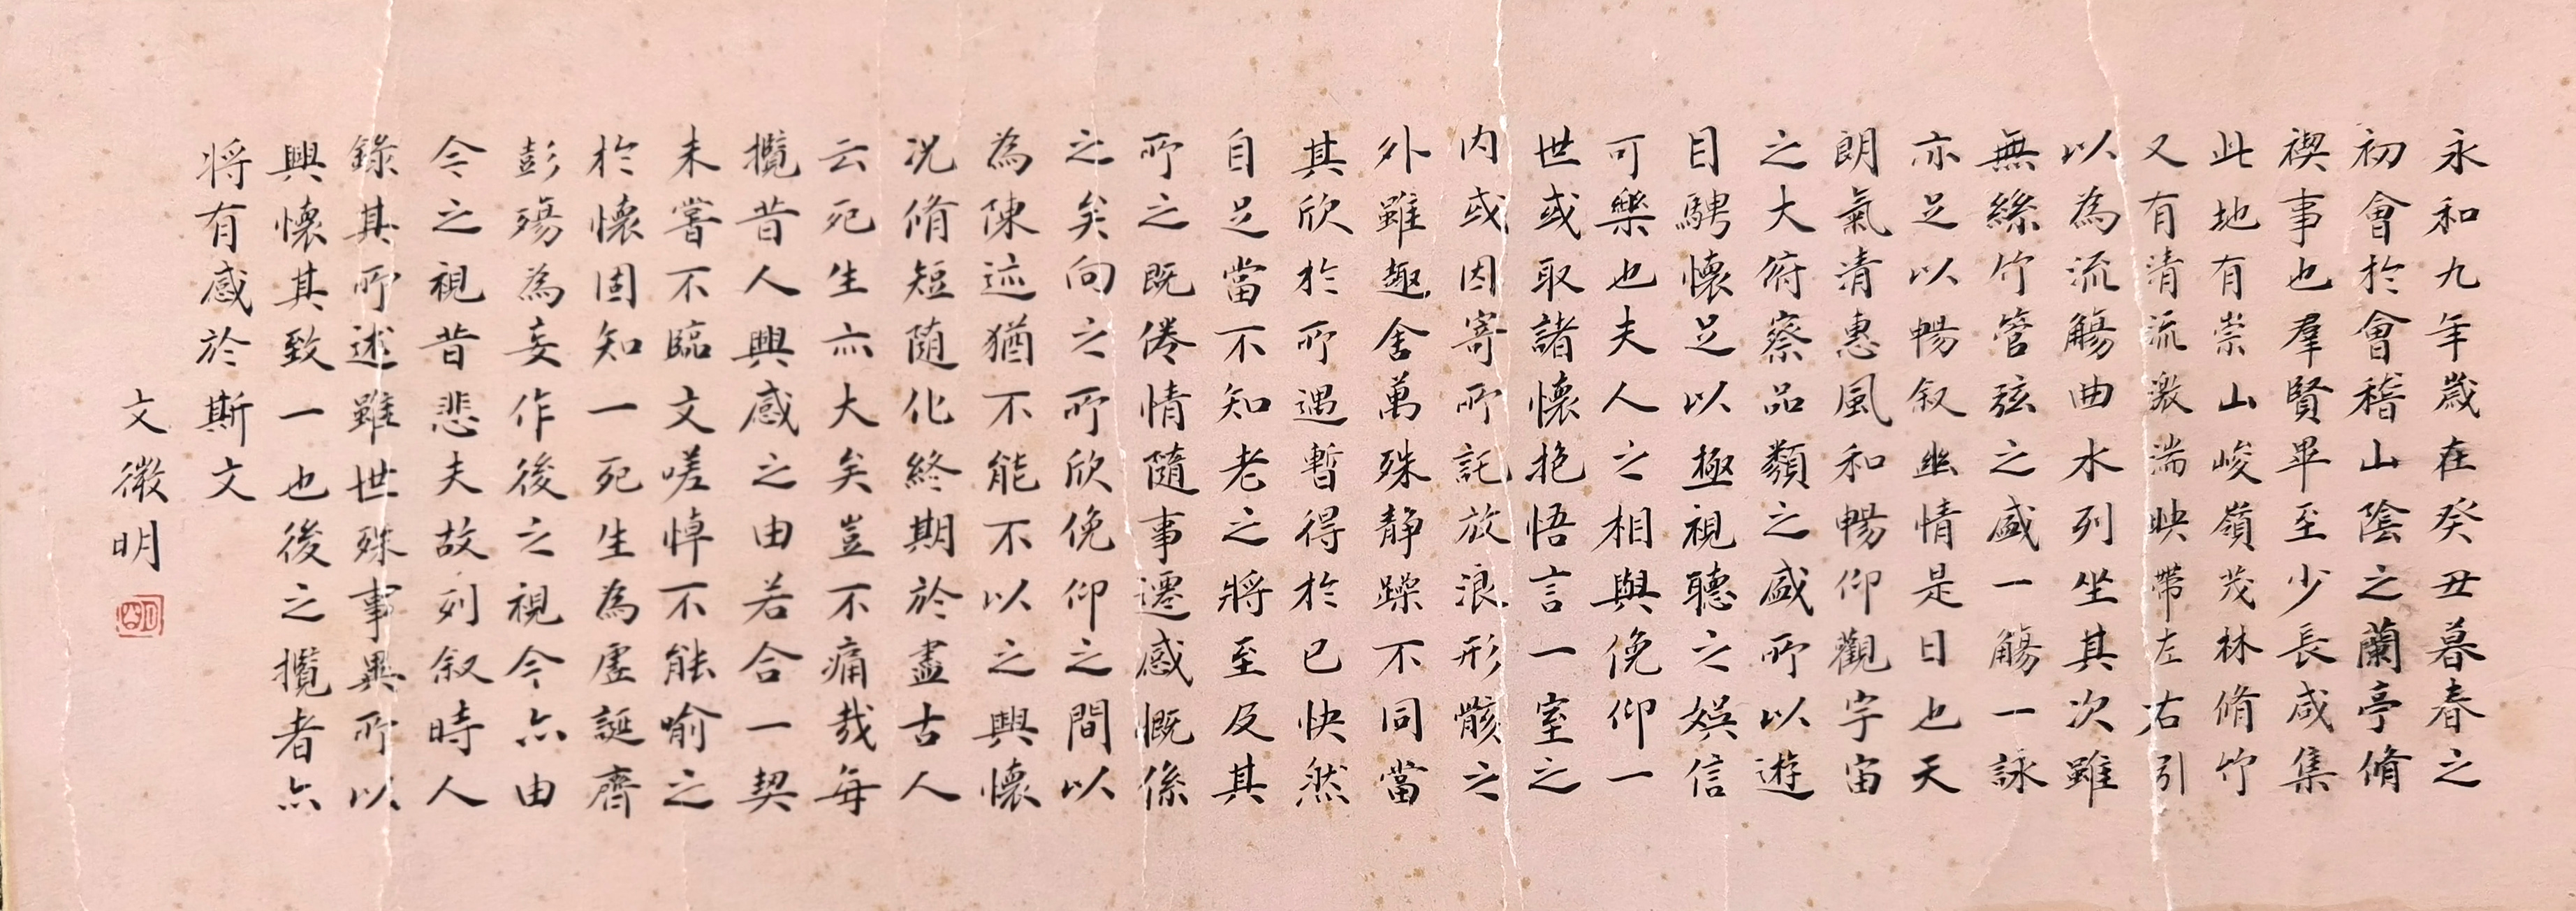 永和九年歲在癸丑暮春之
初會於會稽山陰之蘭亭脩
禊事也羣賢畢至少長咸集
此地有崇山峻嶺茂林脩竹
又有清流激湍映帶左右引
以為流觴曲水列坐其次雖
無絲竹管弦之盛一觴一詠
亦足以暢叙幽情是日也天
朗氣清惠風和暢仰觀宇宙
之大俯察品類之盛所以遊
目騁懷足以極視聽之娛信
可樂也夫人之相與俛仰一
世或取諸懷抱悟言一室之
内或因寄所託放浪形骸之
外雖趣舍萬殊静躁不同當
其欣於所遇暫得於已快然
自足當不知老之將至及其
所之既倦情隨事遷感慨係
之矣向之所欣俛仰之間以
為陳迹猶不能不以之興懷
况脩短隨化終期於盡古人
云死生亦大矣豈不痛哉每
攬昔人興感之由若合一契
未嘗不臨文嗟悼不能喻之
於懷固知一死生為虛誕齊
彭殤為妄作後之視今亦由
今之視昔悲夫故列叙時人
錄其所述雖世殊事異所以
興懷其致一也後之攬者亦
將有感於斯文
文徵明